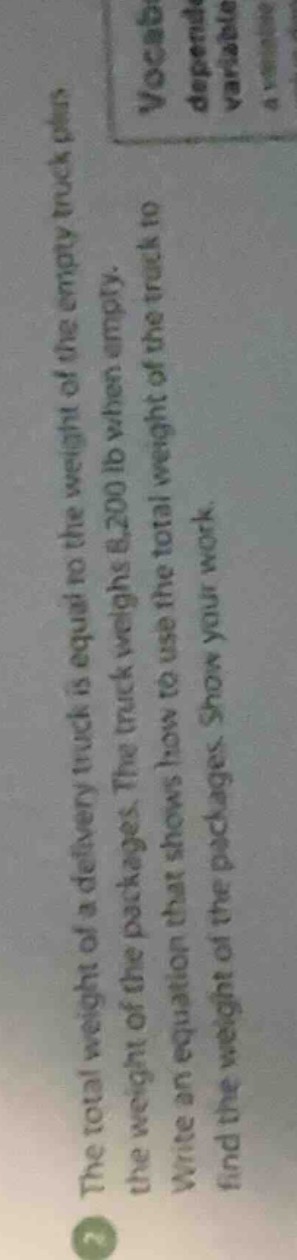 2 The total weight of a delivery truck is equal to the weight of the empty truck plus
the weight of the packages. The truck weighs 8,200 lb when empty.
Write an equation that shows how to use the total weight of the truck to
find the weight of the packages. Show your work.
Vocab
depende
variable
a